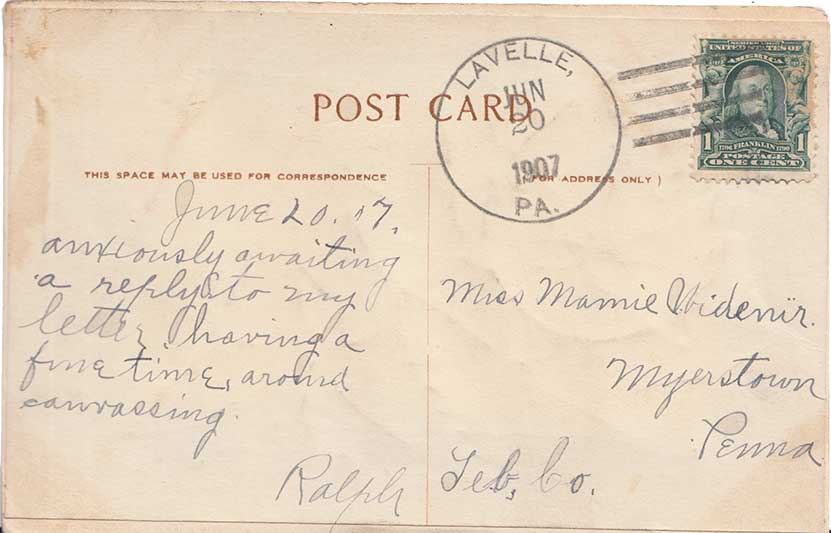 POST CARD
LAVELLE,
JUN
20
1907
PA.
SERIES 1902
UNITED STATES OF
AMERICA
1 1790 FRANKLIN 1790 1
POSTAGE
ONE CENT
THIS SPACE MAY BE USED FOR CORRESPONDENCE
(FOR ADDRESS ONLY)
June 20. 07.
anxiously awaiting
a reply to my
letter, having a
fine time, around
canvassing.
Ralph
Miss Mamie Widenir.
Myerstown
Penna
Leb. Co.